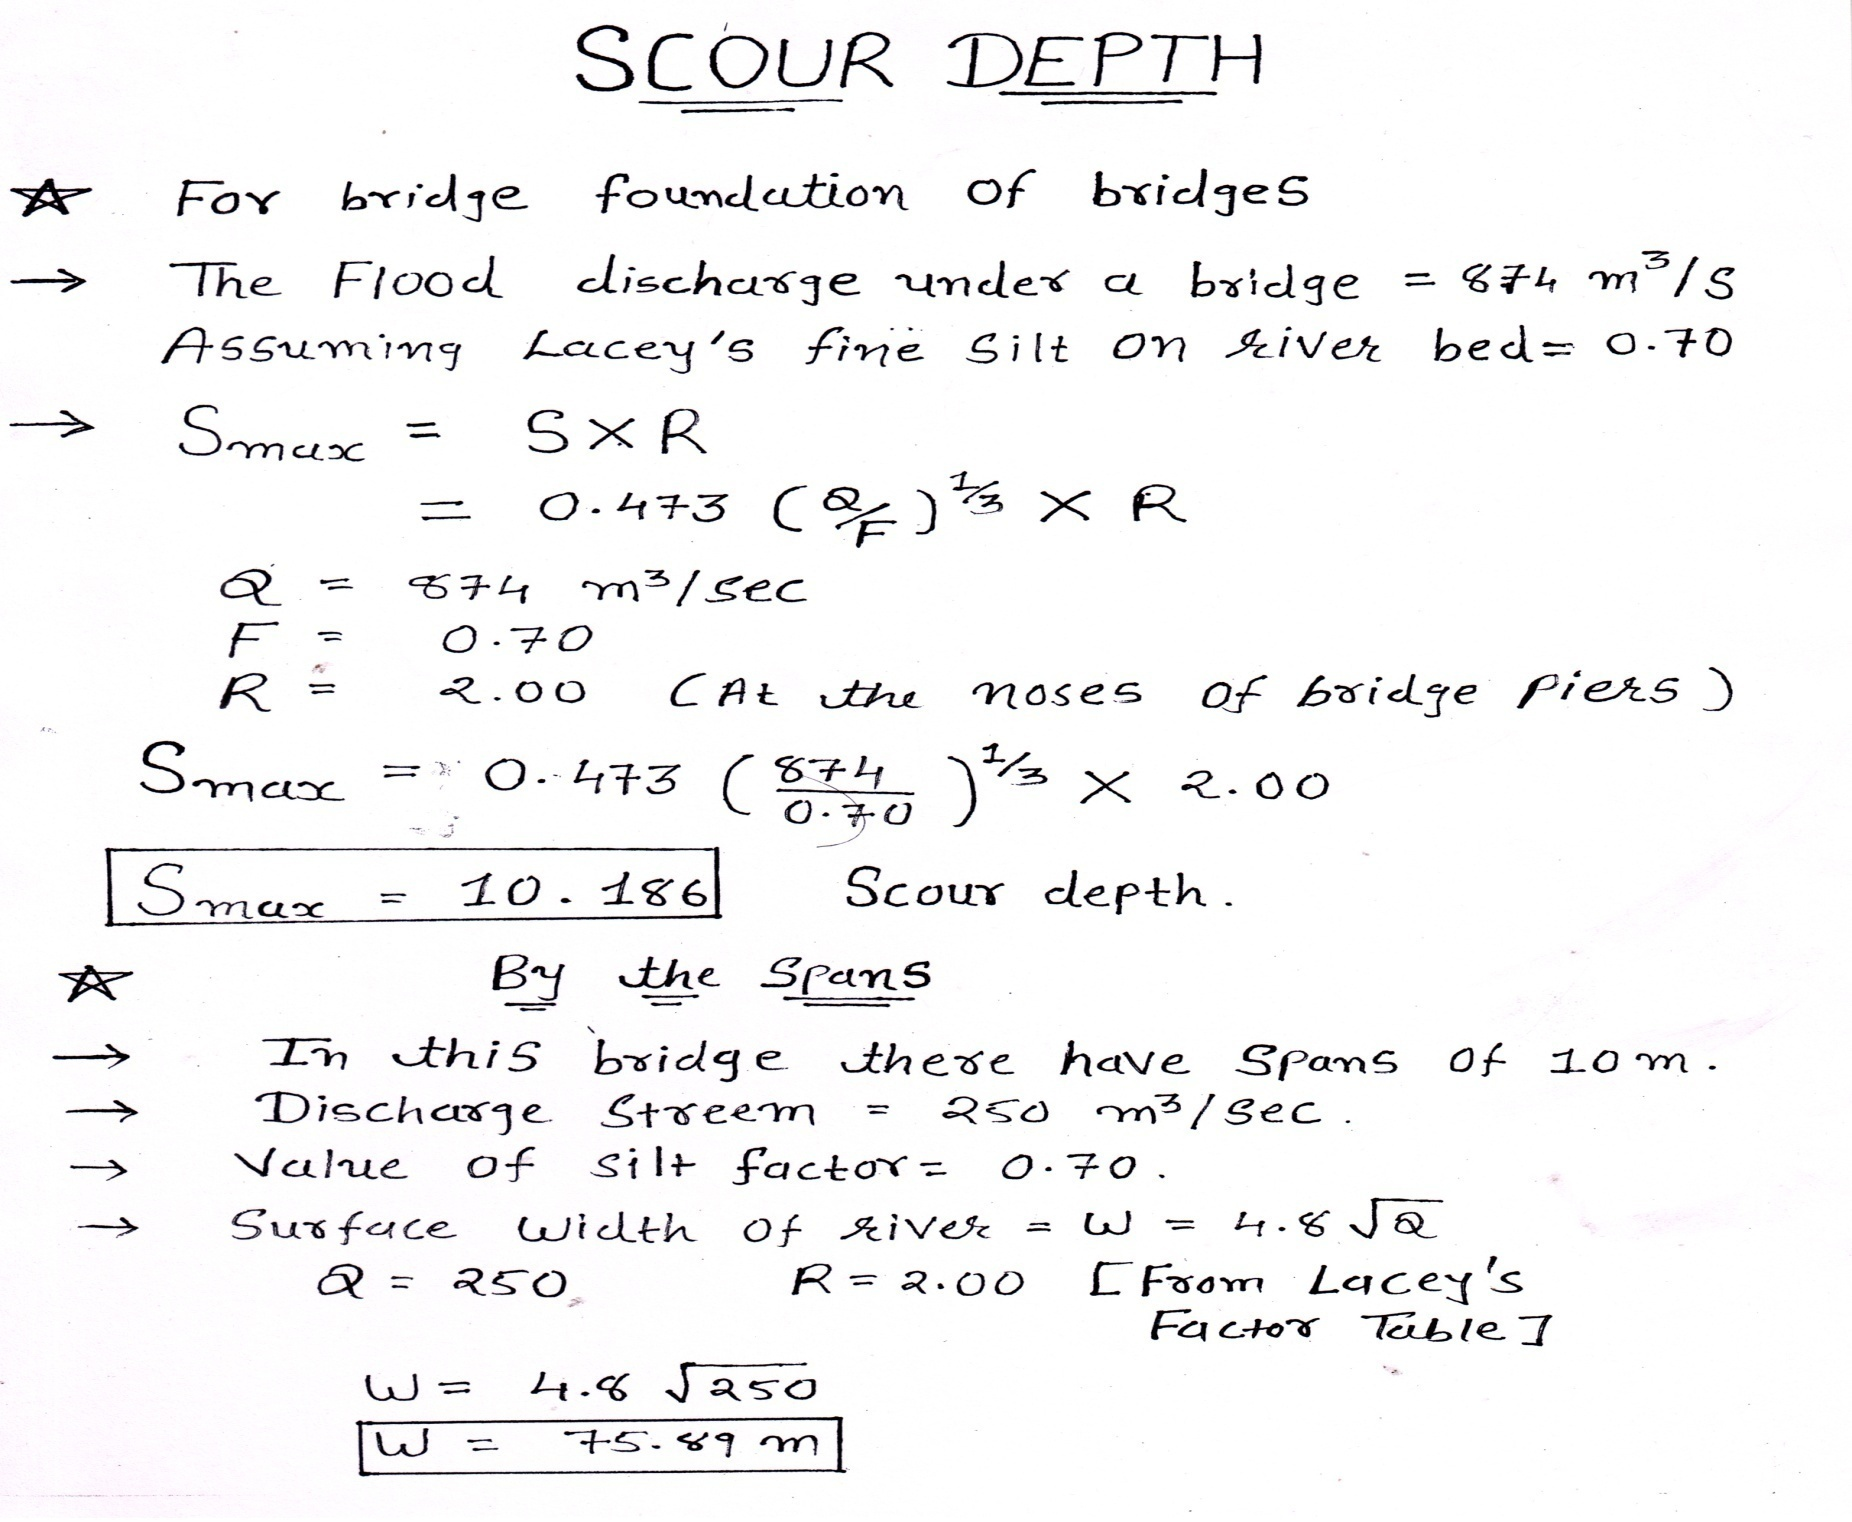 SCOUR DEPTH
☆ For bridge foundation of bridges
→ The Flood discharge under a bridge = 874 m³/s
Assuming Lacey's fine silt on river bed = 0.70
→ Smax = S × R
= 0.473 (Q/F)^1/3 × R
Q = 874 m³/sec
F = 0.70
R = 2.00 (At the noses of bridge piers)
Smax = 0.473 (874/0.70)^1/3 × 2.00
Smax = 10.186 Scour depth.
☆ By the Spans
→ In this bridge there have spans of 10 m.
→ Discharge Streem = 250 m³/sec.
→ Value of silt factor = 0.70.
→ Surface width of river = W = 4.8 √Q
Q = 250 R = 2.00 [From Lacey's
Factor Table]
W = 4.8 √250
W = 75.89 m